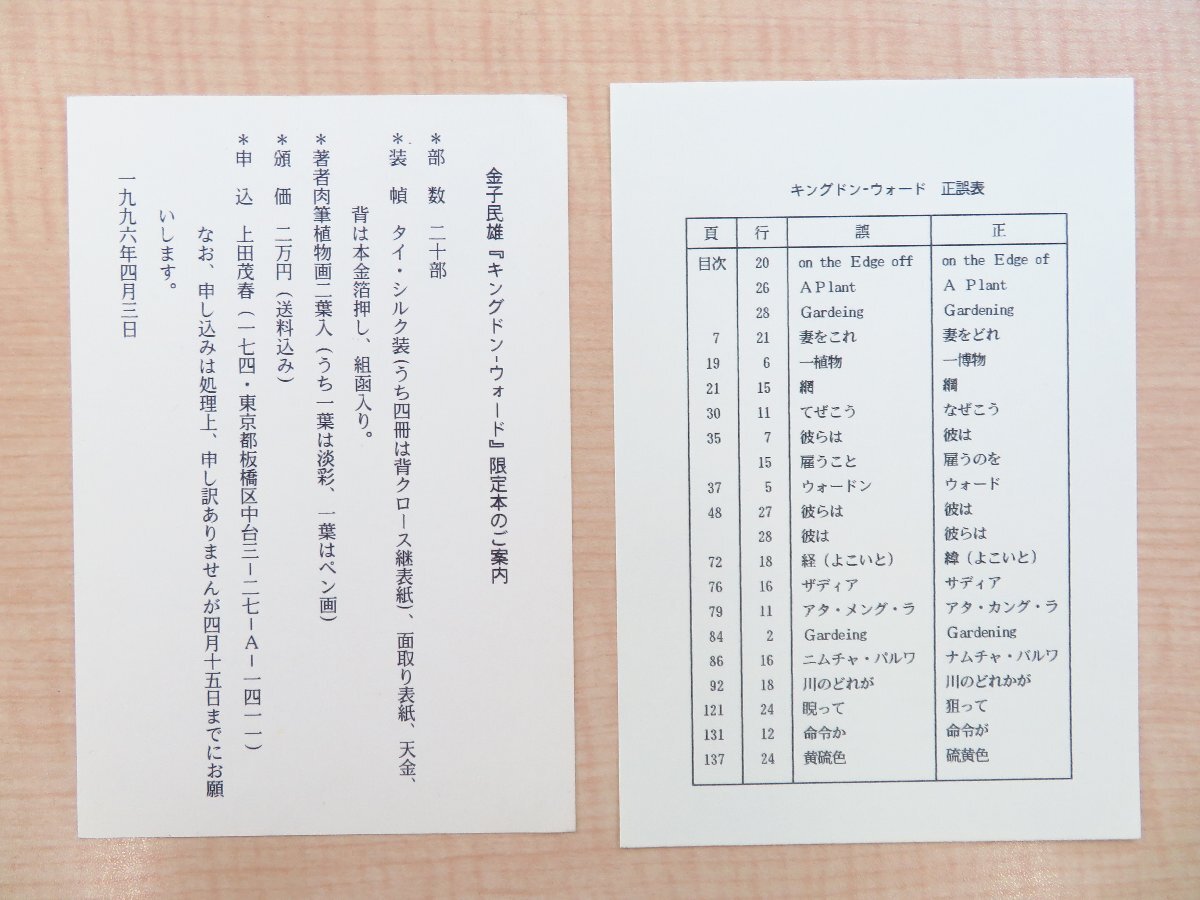 金子民雄『キングドン-ウォード』限定本のご案内
＊部　数　二十部
＊装　幀　タイ・シルク装（うち四冊は背クロース継表紙）、面取り表紙、天金、
背は本金箔押し、組函入り。
＊著者肉筆植物画二葉入（うち一葉は淡彩、一葉はペン画）
＊頒　価　二万円（送料込み）
＊申　込　上田茂春（一七四・東京都板橋区中台三−二七−Ａ−一四一一）
なお、申し込みは処理上、申し訳ありませんが四月十五日までにお願
いします。
一九九六年四月三日
キングドン-ウォード　正誤表
頁 行 誤 正
目次 20 on the Edge off on the Edge of
26 A Plant A Plant
28 Gardeing Gardening
7 21 妻をこれ 妻をどれ
19 6 一植物 一博物
21 15 網 綱
30 11 てぜこう なぜこう
35 7 彼らは 彼は
15 雇うこと 雇うのを
37 5 ウォードン ウォード
48 27 彼らは 彼は
28 彼は 彼らは
72 18 経（よこいと） 緯（よこいと）
76 16 ザディア サディア
79 11 アタ・メング・ラ アタ・カング・ラ
84 2 Gardeing Gardening
86 16 ニムチャ・パルワ ナムチャ・バルワ
92 18 川のどれが 川のどれかが
121 24 睨って 狙って
131 12 命令か 命令が
137 24 黄硫色 硫黄色